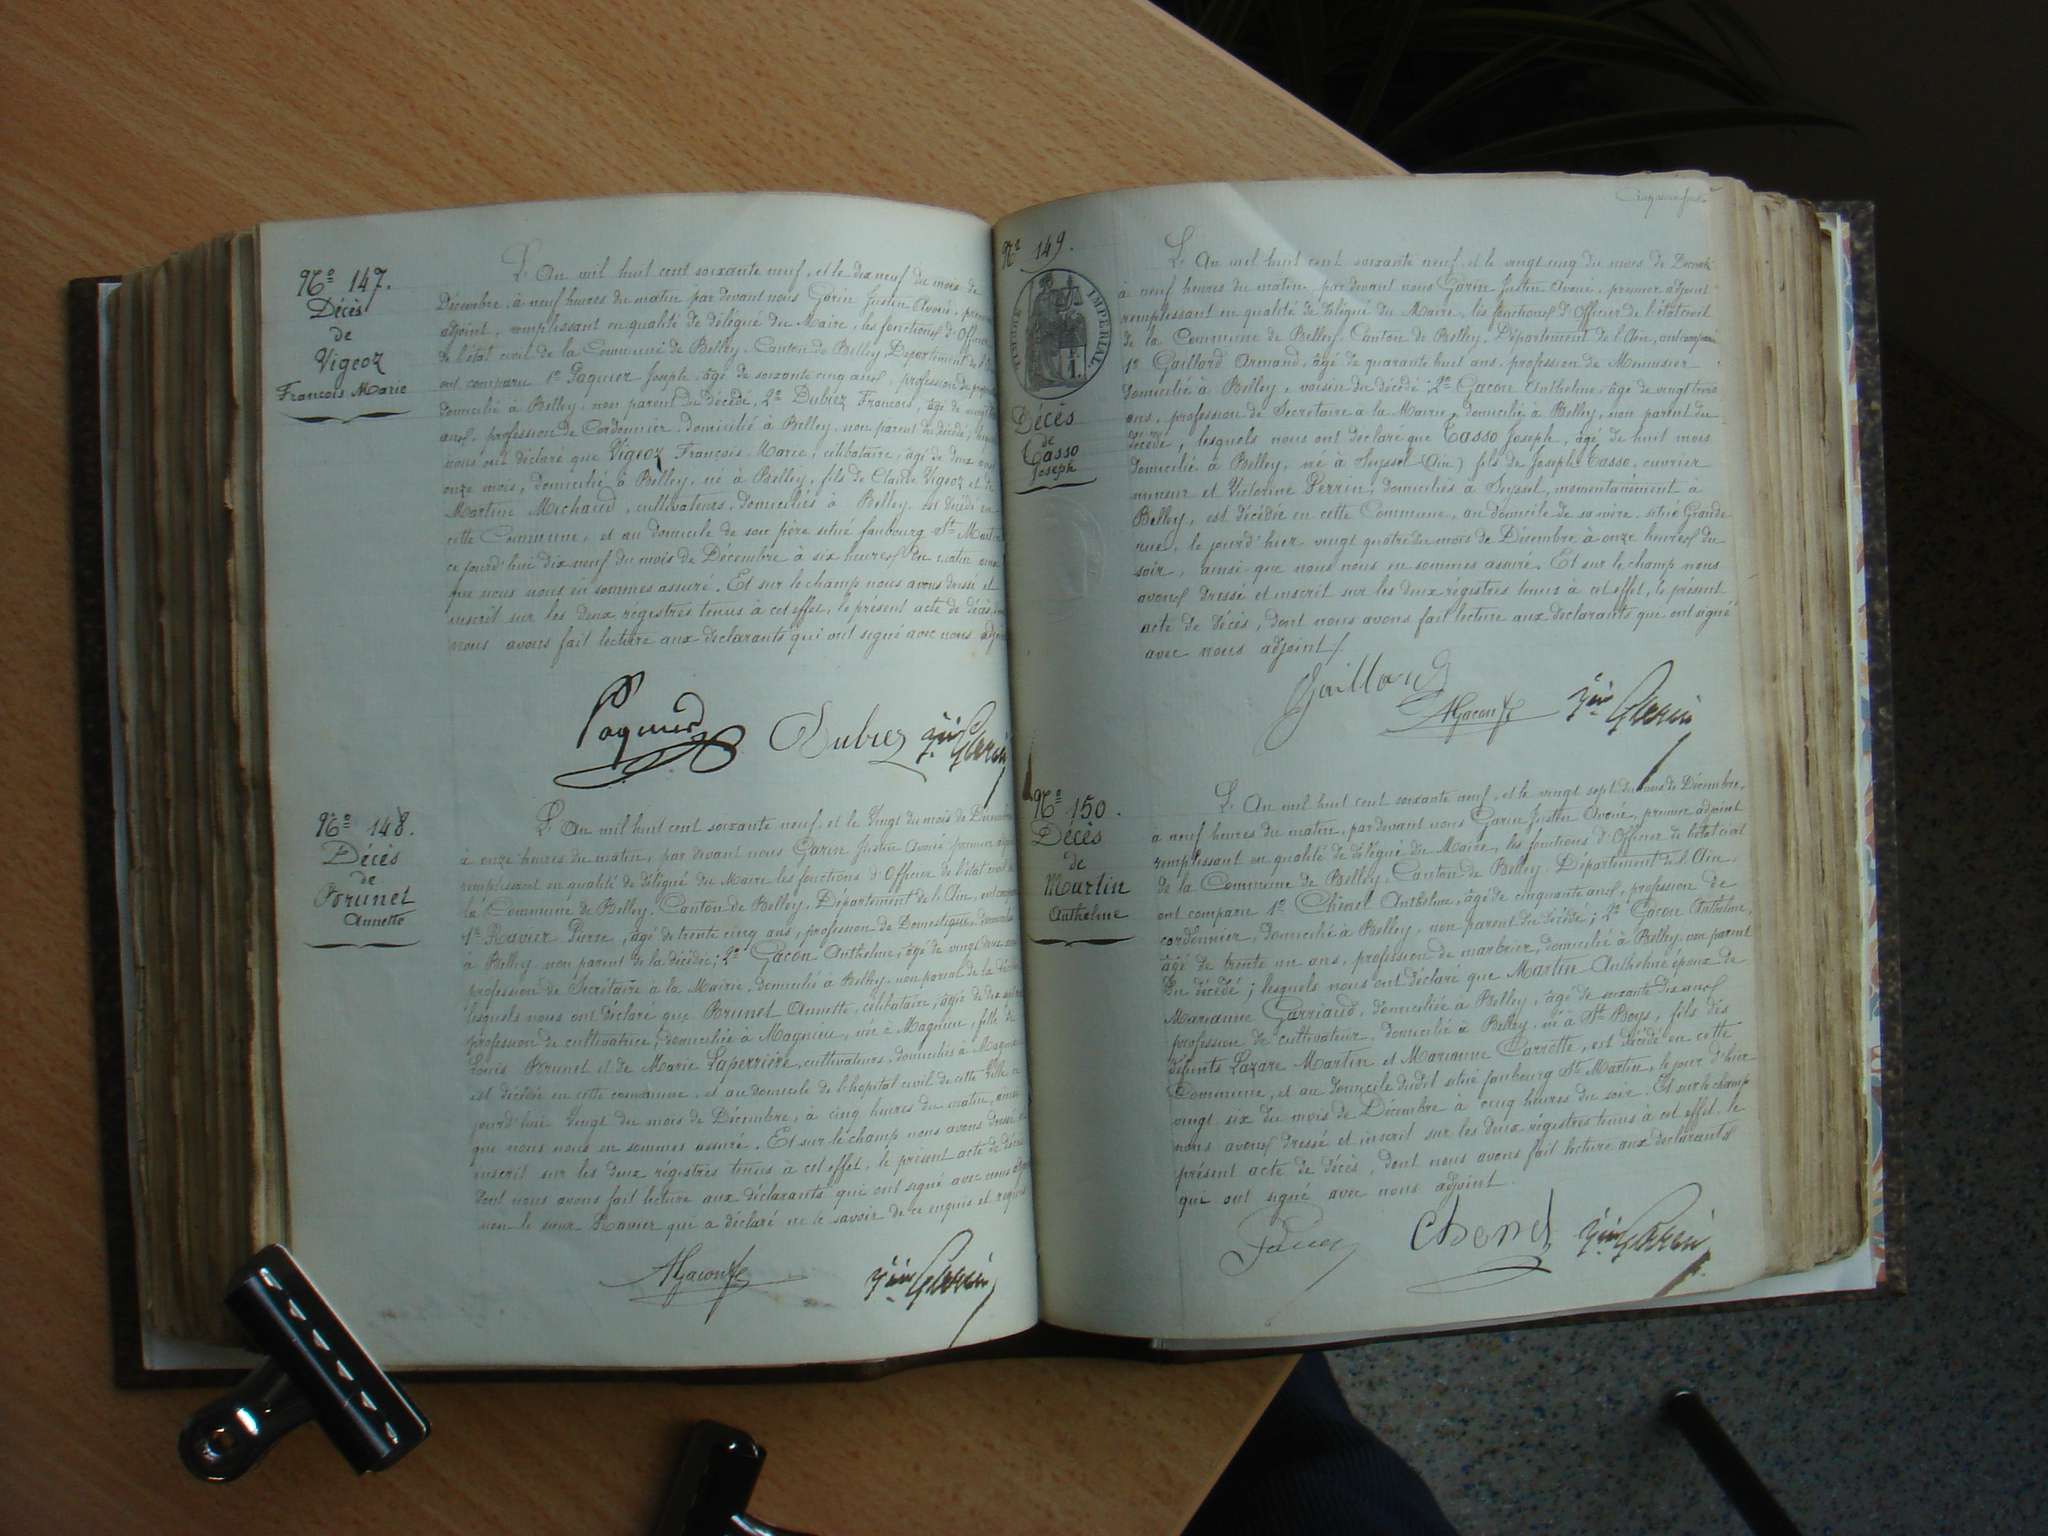 N° 147.
Décès
de
Vigeoz
François Marie
L'An mil huit cent soixante neuf, et le dix neuf du mois de
Décembre, à neuf heures du matin par devant nous Garin Justin Avoué, premier
adjoint, remplissant en qualité de délégué du Maire, les fonctions d'Officier
de l'état civil de la Commune de Belley, Canton de Belley, Département de l'Ain
ont comparu 1° Poguier Joseph, âgé de soixante cinq ans, profession de
domicilié à Belley, non parent du décédé, 2° Dubiez François, âgé de vingt
ans, profession de Cordonnier, domicilié à Belley, non parent du décédé,
nous ont déclaré que Vigeoz François Marie, célibataire, âgé de deux ans
onze mois, domicilié à Belley, né à Belley, fils de Claude Vigeoz et de
Martine Michaud, cultivateurs, domiciliés à Belley est décédé en
cette Commune, et au domicile de son père situé faubourg St Martin
ce jourd'hui dix neuf du mois de Décembre à six heures du matin ainsi
que nous nous en sommes assuré. Et sur le champ nous avons dressé et
inscrit sur les deux régistres tenus à cet effet, le présent acte de décès,
nous avons fait lecture aux déclarants qui ont signé avec nous adjoint
Poguier Dubiez Jin Garin
N° 148.
Décès
de
Brunet
Annette
L'An mil huit cent soixante neuf, et le Vingt du mois de Décembre
à onze heures du matin, par devant nous Garin Justin Avoué premier adjoint
remplissant en qualité de délégué du Maire les fonctions d'Officier de l'état civil de
la Commune de Belley, Canton de Belley, Département de l'Ain, ont comparu
1° Ravier Pierre, âgé de trente cinq ans, profession de Domestique, domicilié
à Belley non parent de la décédée; 2° Gacon Anthelme, âgé de vingt trois ans
profession de Secrétaire à la Mairie, domicilié à Belley, non parent de la décédée
lesquels nous ont déclaré que Brunet Annette, célibataire, âgée de dix
profession de cultivatrice, domiciliée à Magnieu, née à Magnieu, fille de
Louis Brunet et de Marie Laperrière, cultivateurs, domiciliés à Magnieu
est décédée en cette commune, et au domicile de l'hopital civil de cette Ville ce
jourd'hui Vingt du mois de Décembre, à cinq heures du matin, ainsi
que nous nous en sommes assuré. Et sur le champ nous avons dressé et
inscrit sur les deux régistres tenus à cet effet, le présent acte de décès
dont nous avons fait lecture aux déclarants qui ont signé avec nous adjoint
non le sieur Ravier qui a déclaré ne le savoir de ce enquis et requis
AGacon Jin Garin
N° 149.
TIMBRE IMPERIAL
1 F.
Décès
de
Casso
Joseph
L'An mil huit cent soixante neuf, et le vingt cinq du mois de Décembre
à neuf heures du matin, par devant nous Garin Justin Avoué, premier adjoint
remplissant en qualité de délégué du Maire, les fonctions d'Officier de l'état civil
de la Commune de Belley, Canton de Belley, Département de l'Ain, ont comparu
1° Gaillard Armand, âgé de quarante huit ans, profession de Menuisier
domicilié à Belley, voisin du décédé; 2° Gacon Anthelme, âgé de vingt trois
ans, profession de Secrétaire à la Mairie, domicilié à Belley, non parent du
décédé, lesquels nous ont déclaré que Casso Joseph, âgé de huit mois
domicilié à Belley, né à Seyssel (Ain) fils de Joseph Casso, ouvrier
mineur et Victorine Perrin, domiciliés à Seyssel, momentanément à
Belley, est décédée en cette Commune, au domicile de sa mère, situé Grande
rue, le jourd'hier vingt quatre du mois de Décembre à onze heures du
soir, ainsi que nous nous en sommes assuré. Et sur le champ nous
avons dressé et inscrit sur les deux régistres tenus à cet effet, le présent
acte de décès, dont nous avons fait lecture aux déclarants qui ont signé
avec nous adjoint
Gaillard AGacon Jin Garin
N° 150.
Décès
de
Martin
Anthelme
L'An mil huit cent soixante neuf, et le vingt sept du mois de Décembre,
à neuf heures du matin, par devant nous Garin Justin Avoué, premier adjoint
remplissant en qualité de délégué du Maire, les fonctions d'Officier de l'état civil
de la Commune de Belley, Canton de Belley, Département de l'Ain,
ont comparu 1° Chenel Anthelme, âgé de cinquante ans, profession de
cordonnier, domicilié à Belley, non parent du décédé; 2° Gacon Anthelme,
âgé de trente un ans, profession de marbrier, domicilié à Belley, non parent
du décédé; lesquels nous ont déclaré que Martin Anthelme époux de
Marianne Garriaud, domiciliée à Belley, âgé de soixante dix ans
profession de cultivateur, domicilié à Belley, né à St Boys, fils des
défunts Lazare Martin et Marianne Carrette, est décédé en cette
Commune, et au domicile dudit situé faubourg St Martin, le jour d'hier
vingt six du mois de Décembre à cinq heures du soir. Et sur le champ
nous avons dressé et inscrit sur les deux régistres tenus à cet effet, le
présent acte de décès, dont nous avons fait lecture aux déclarants
qui ont signé avec nous adjoint.
Chenel Jin Garin